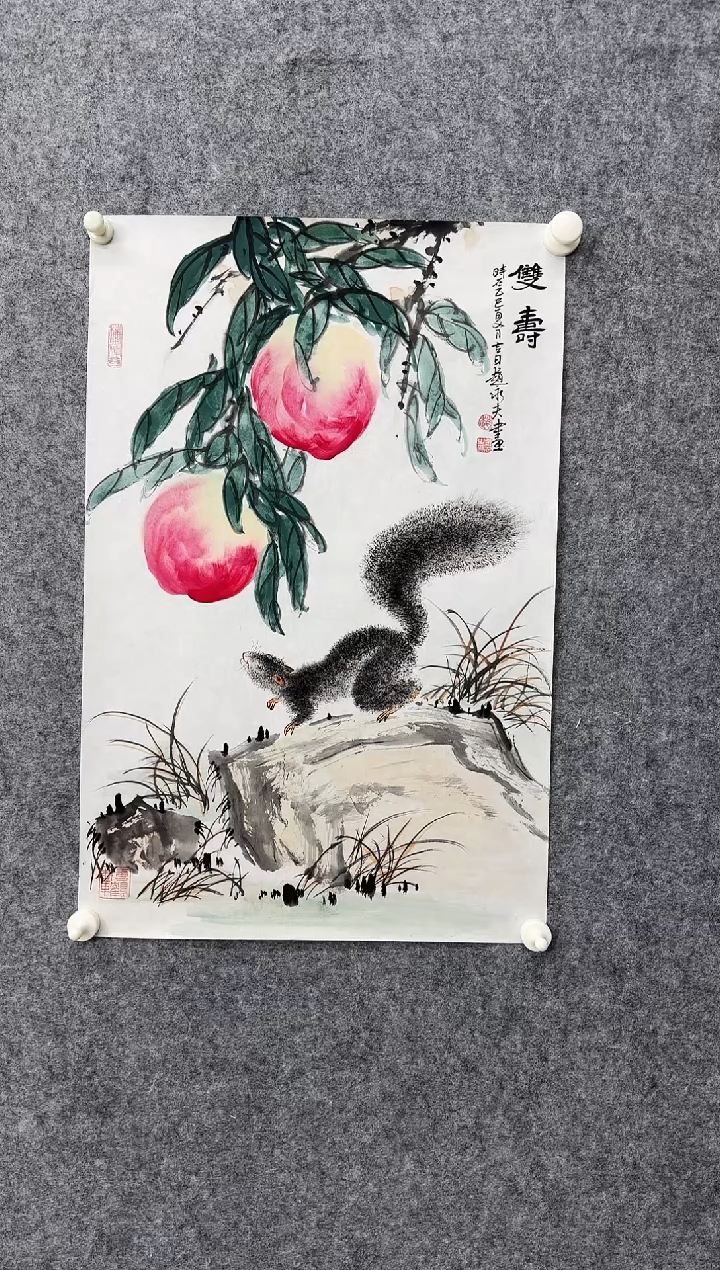 雙壽
時在乙巳夏月吉日趙永夫畫